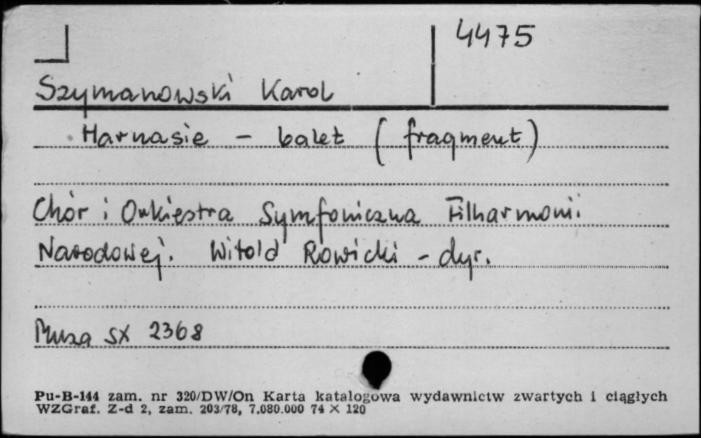 4475
Szymanowski Karol
Harnasie - balet (fragment)
Chór i Orkiestra Symfoniczna Filharmonii
Narodowej. Witold Rowicki - dyr.
Muza SX 2368
Pu-B-144 zam. nr 320/DW/On Karta katalogowa wydawnictw zwartych i ciągłych
WZGraf. Z-d 2, zam. 203/78, 7.080.000 74 × 120